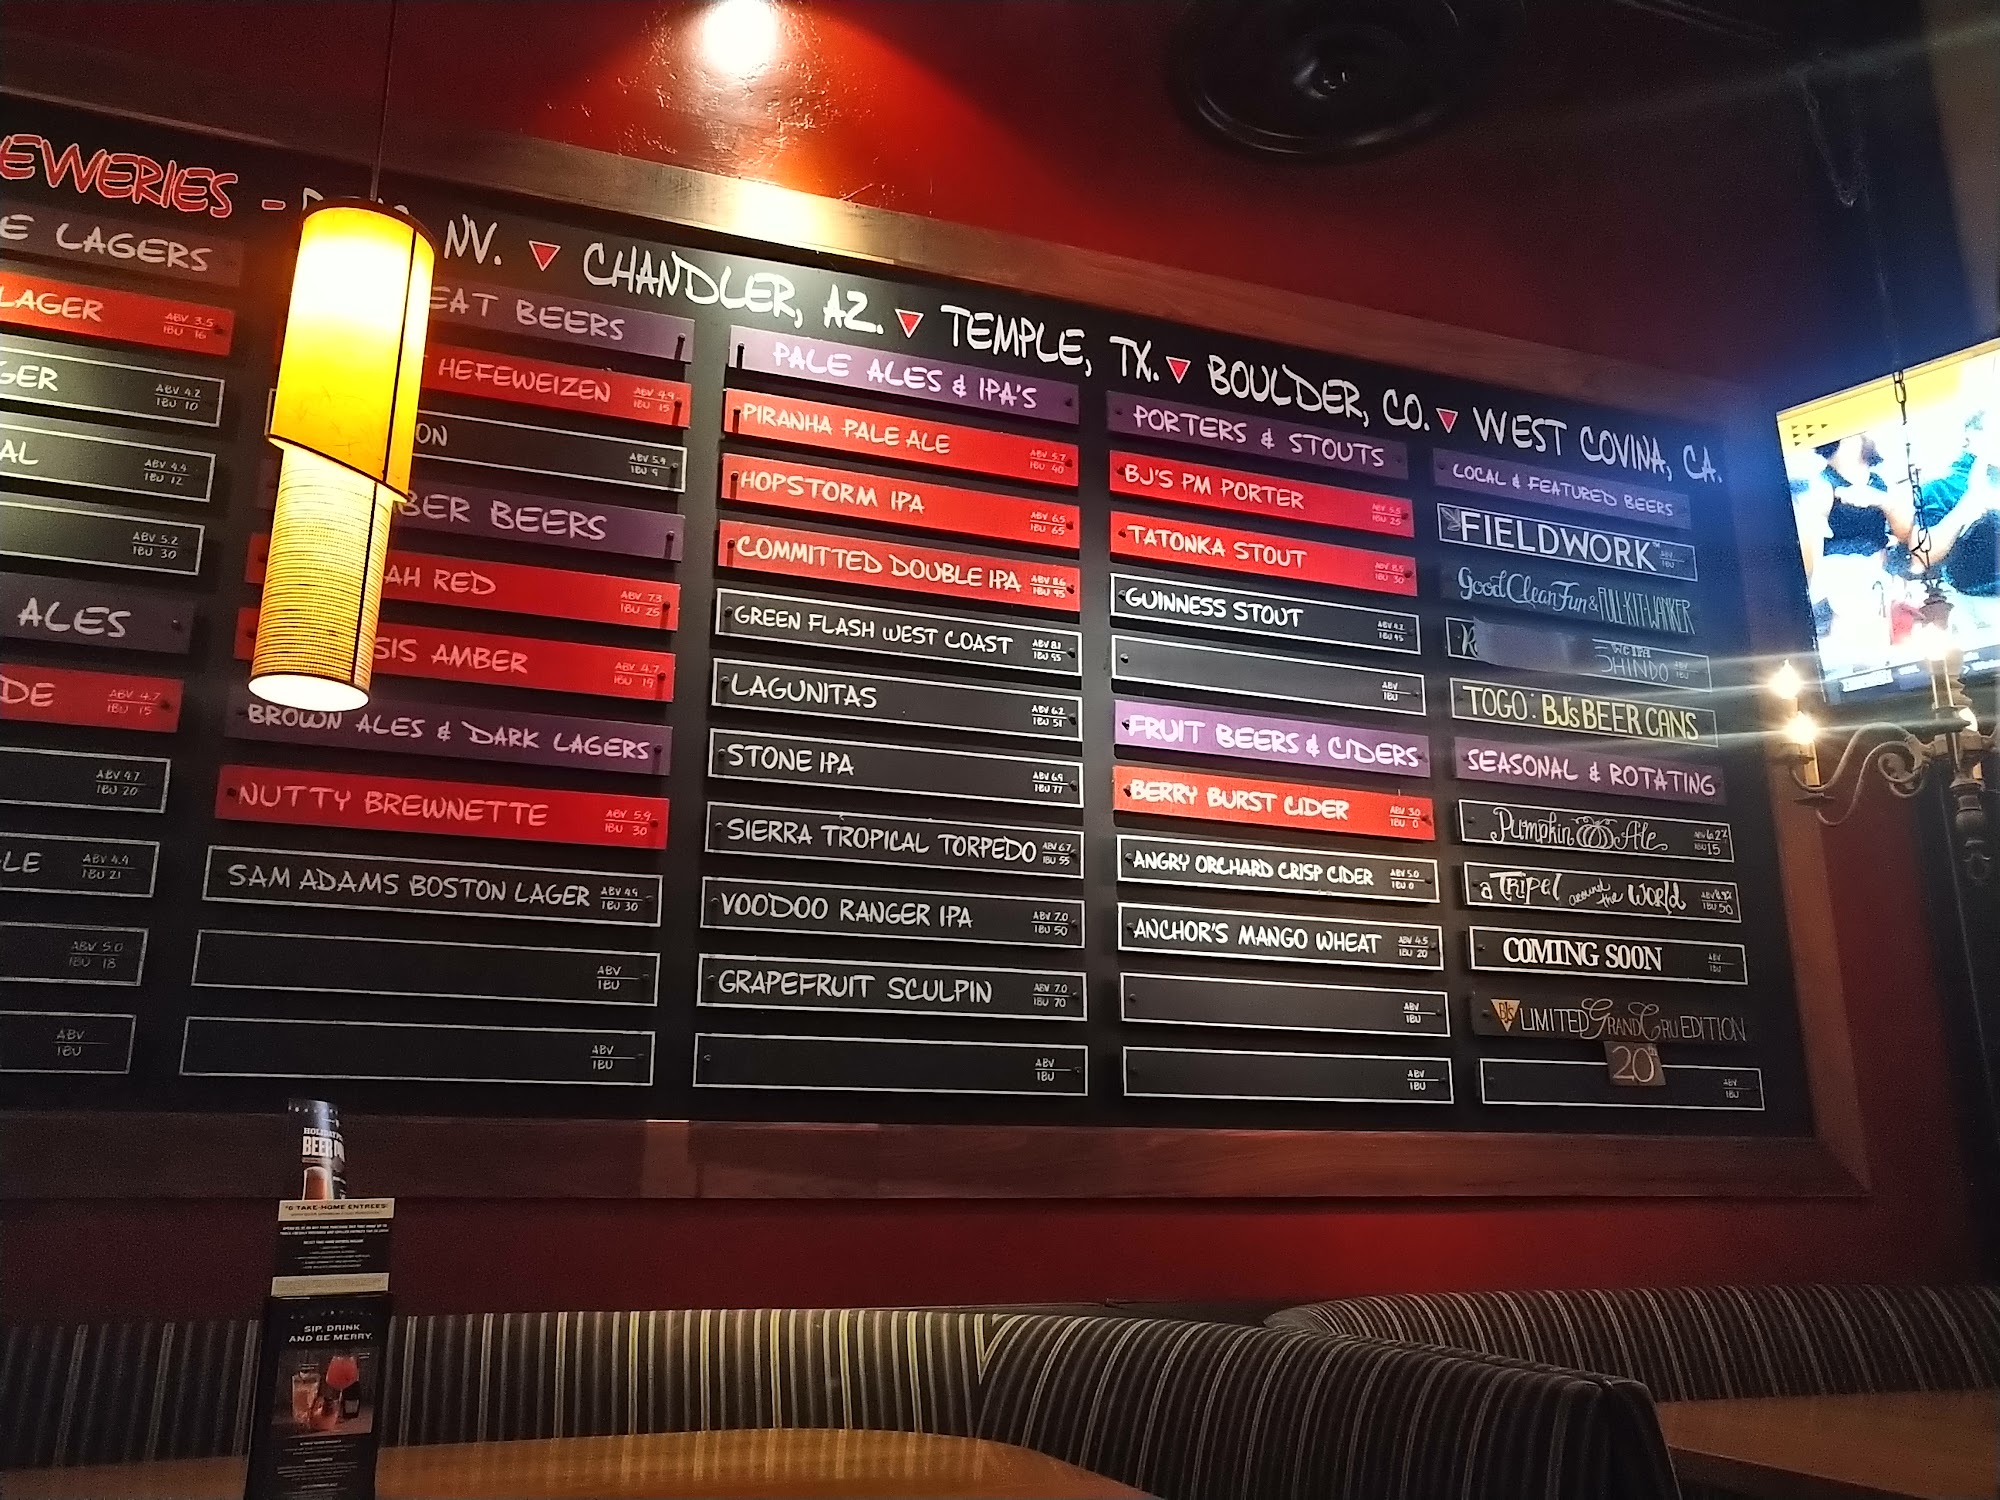 EWERIES - NV. CHANDLER, AZ. TEMPLE, TX. BOULDER, CO. WEST COVINA, CA.
E LAGERS
LAGER ABV 3.5 IBU 16
GER ABV 4.2 IBU 10
AL ABV 4.4 IBU 12
ABV 5.2 IBU 30
ALES
DE ABV 4.7 IBU 15
ABV 4.7 IBU 20
LE ABV 4.9 IBU 21
ABV 5.0 IBU 18
ABV IBU
EAT BEERS
HEFEWEIZEN ABV 4.9 IBU 15
ON ABV 5.4 IBU 9
BER BEERS
AH RED ABV 7.3 IBU 25
SIS AMBER ABV 4.7 IBU 19
BROWN ALES & DARK LAGERS
NUTTY BREWNETTE ABV 5.9 IBU 30
SAM ADAMS BOSTON LAGER ABV 4.9 IBU 30
ABV IBU
ABV IBU
PALE ALES & IPA'S
PIRANHA PALE ALE ABV 5.7 IBU 40
HOPSTORM IPA ABV 6.5 IBU 65
COMMITTED DOUBLE IPA ABV 8.6 IBU 95
GREEN FLASH WEST COAST ABV 8.1 IBU 95
LAGUNITAS ABV 6.2 IBU 51
STONE IPA ABV 6.9 IBU 77
SIERRA TROPICAL TORPEDO ABV 6.7 IBU 55
VOODOO RANGER IPA ABV 7.0 IBU 50
GRAPEFRUIT SCULPIN ABV 7.0 IBU 70
ABV IBU
PORTERS & STOUTS
BJ'S PM PORTER ABV 5.5 IBU 25
TATONKA STOUT ABV 8.5 IBU 30
GUINNESS STOUT ABV 4.2 IBU 45
ABV IBU
FRUIT BEERS & CIDERS
BERRY BURST CIDER ABV 3.0 IBU 0
ANGRY ORCHARD CRISP CIDER ABV 5.0 IBU 0
ANCHOR'S MANGO WHEAT ABV 4.5 IBU 20
ABV IBU
ABV IBU
LOCAL & FEATURED BEERS
FIELDWORK ABV IBU
Good Clean Fun & FULL-KIT-WANKER
SHINDO ABV IBU
TOGO: BJ's BEER CANS
SEASONAL & ROTATING
Pumpkin Ale ABV 6.2% IBU 15
a Tripel around the World IBU 50
COMING SOON ABV IBU
BJ's LIMITED Grand Cru EDITION
20TH
ABV IBU
HOLIDAY
BEER
"6 TAKE-HOME ENTREES"
SIP, DRINK
AND BE MERRY.